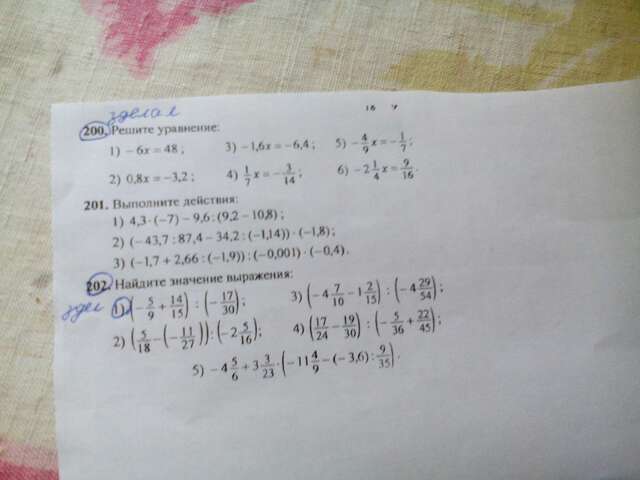 зделал
200. Решите уравнение:
1) −6x = 48; 3) −1,6x = −6,4; 5) −4/9 x = −1/7;
2) 0,8x = −3,2; 4) 1/7 x = −3/14; 6) −2 1/4 x = 9/16.
201. Выполните действия:
1) 4,3·(−7) − 9,6 : (9,2 − 10,8);
2) (−43,7 : 87,4 − 34,2 : (−1,14)) · (−1,8);
3) (−1,7 + 2,66 : (−1,9)) : (−0,001) · (−0,4).
202. Найдите значение выражения:
здел 1) (−5/9 + 14/15) : (−17/30); 3) (−4 7/10 − 1 2/15) : (−4 29/54);
2) (5/18 − (−11/27)) : (−2 5/16); 4) (17/24 − 19/30) : (−5/36 + 22/45);
5) −4 5/6 + 3 3/23 · (−11 4/9 − (−3,6) : 9/35).